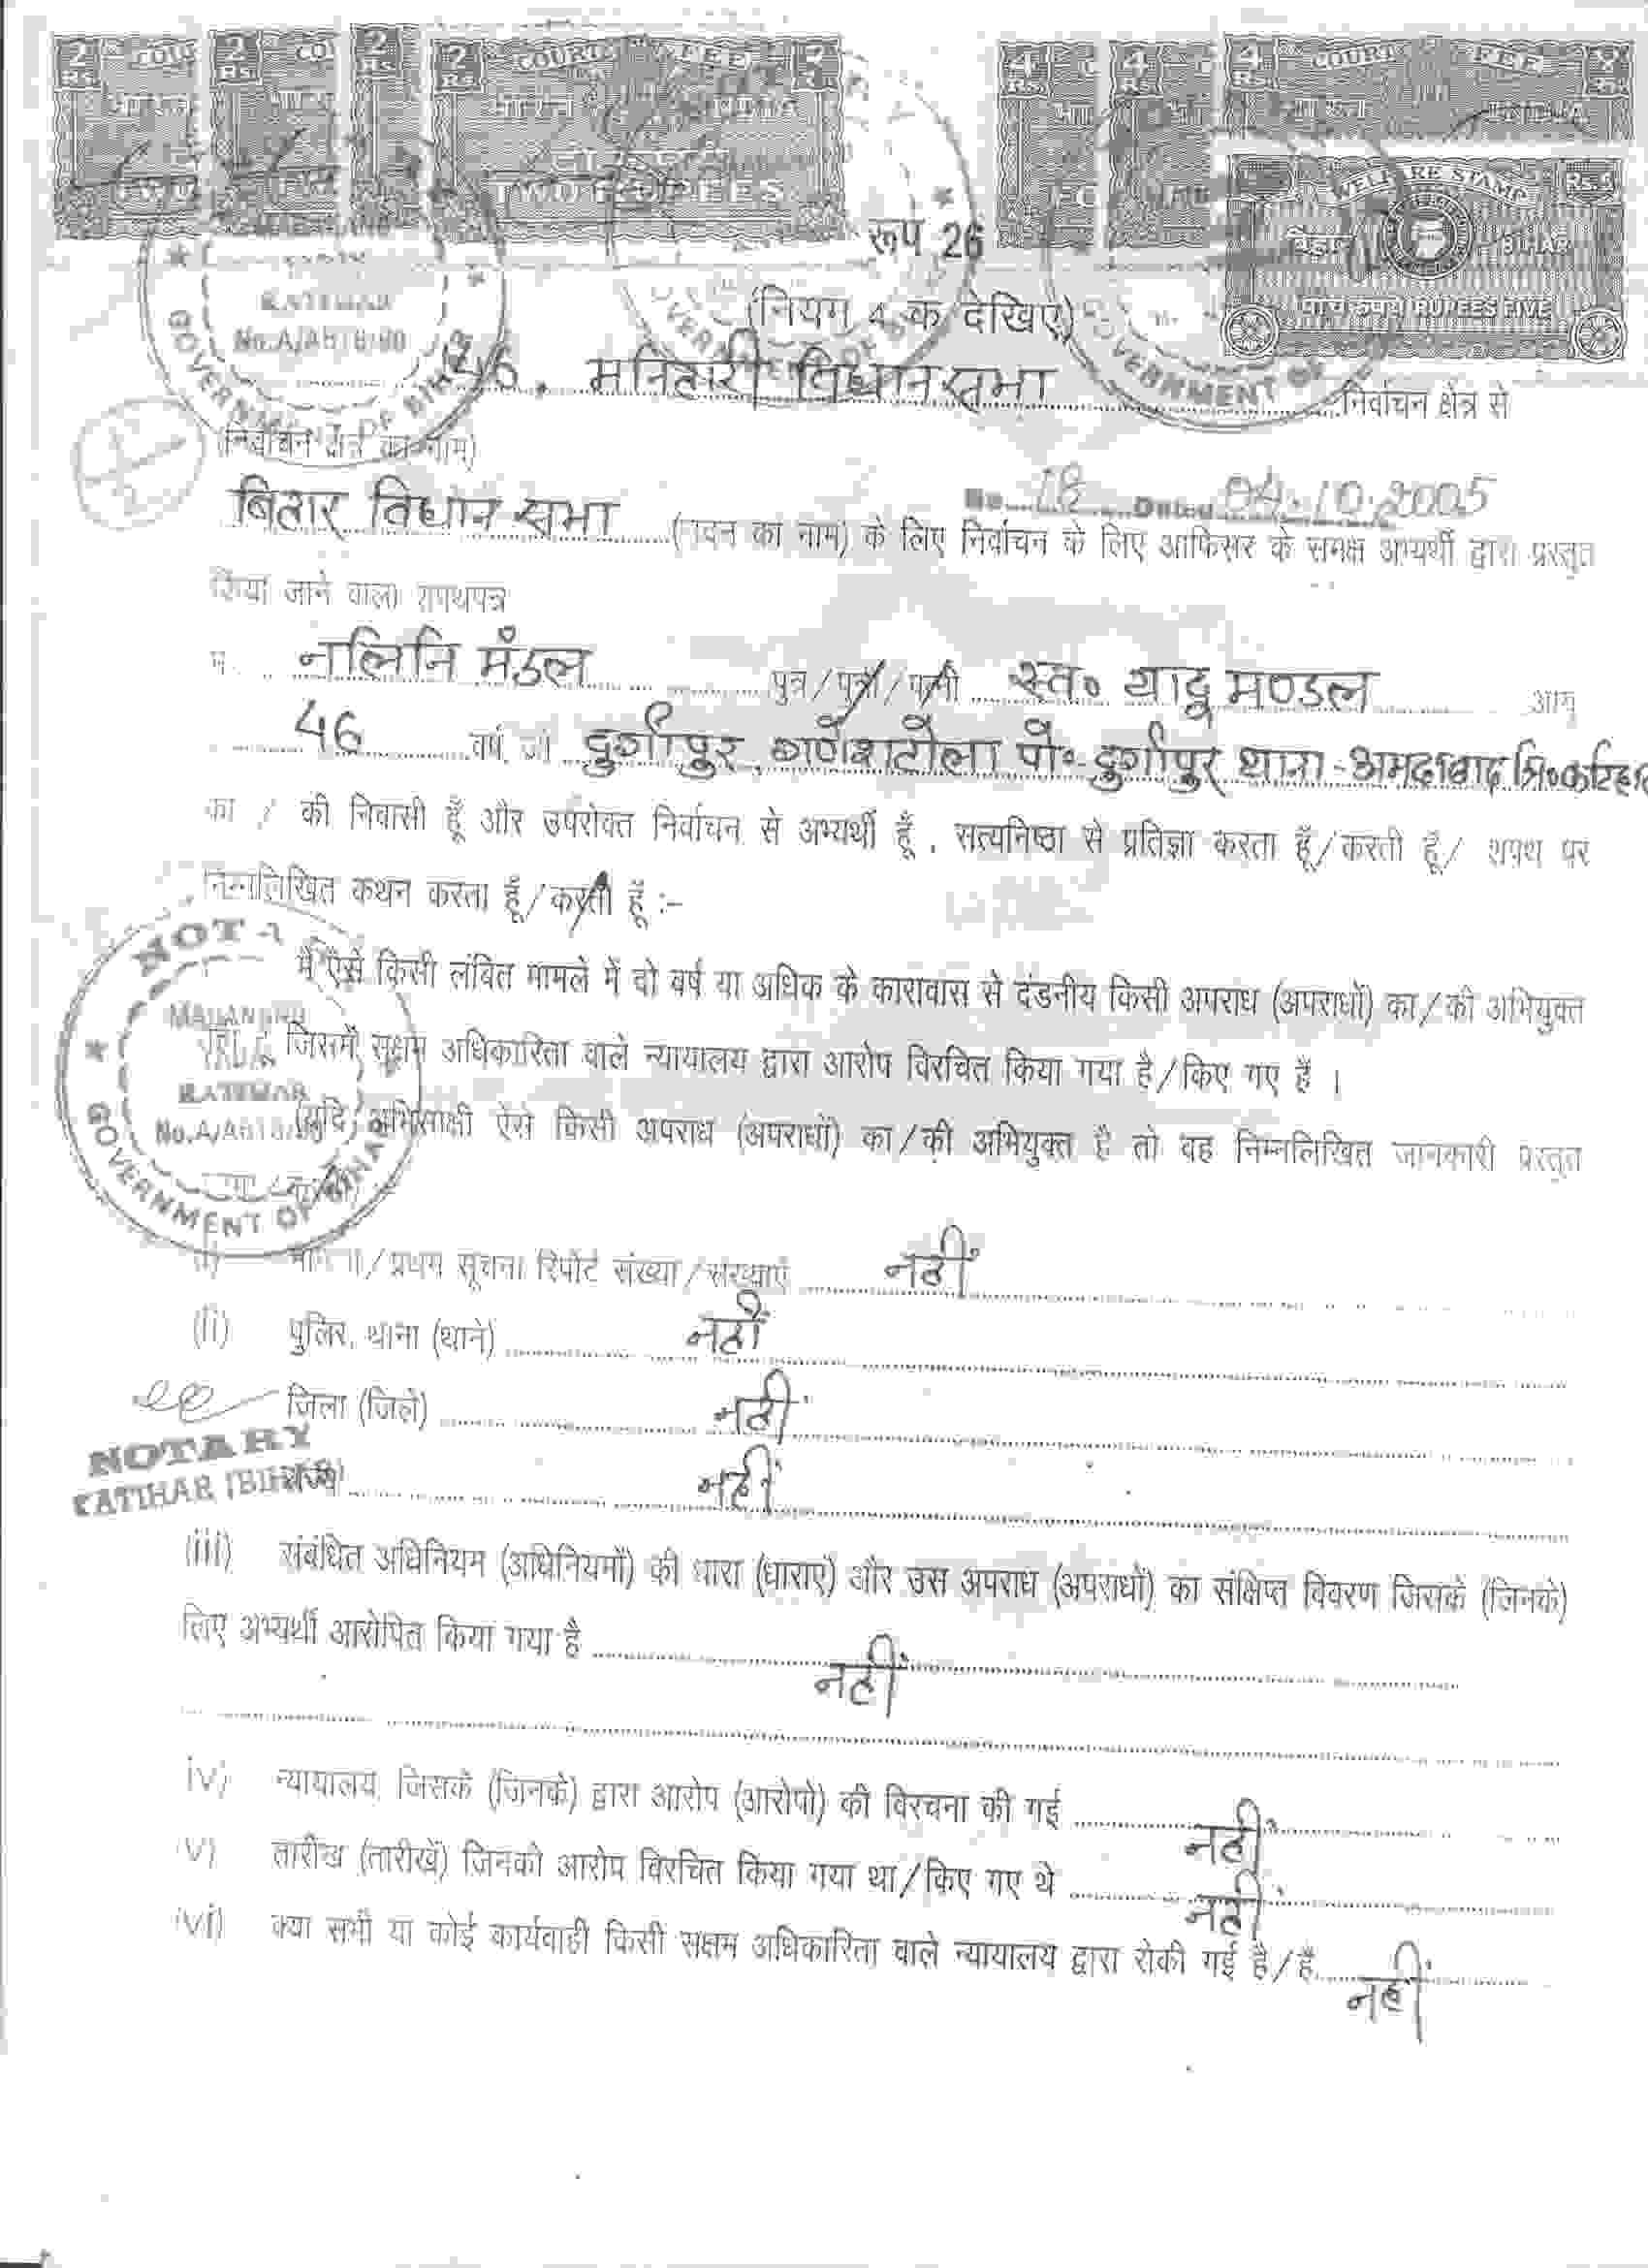 2 Rs. 2 Rs. CO 2 Rs. 2 Rs. COURT FEE
भारत INDIA
TWO RUPEES
4 Rs. 4 Rs. 4 Rs. COURT FEE
भारत INDIA
WELFARE STAMP Rs.5
BIHAR
पाँच रुपये RUPEES FIVE
KATIHAR
GOVERNMENT OF BIHAR
GOVERNMENT OF
रूप 26
(नियम 4-क देखिए)
46. मनिहारी विधान सभा निर्वाचन क्षेत्र से
(निर्वाचन क्षेत्र का नाम)
No. 18 Dated 04.10.2005
बिहार विधान सभा (सदन का नाम) के लिए निर्वाचन के लिए आफिसर के समक्ष अभ्यर्थी द्वारा प्रस्तुत
किया जाने वाला शपथपत्र
नलिनि मंडल पुत्र/पुत्री/पत्नी स्व० यादु मण्डल आयु
46 वर्ष जो दुर्गापुर, गणेशटोला पो०-दुर्गापुर थाना-अमदाबाद जि०कटिहार
का / की निवासी हूँ और उपरोक्त निर्वाचन से अभ्यर्थी हूँ, सत्यनिष्ठा से प्रतिज्ञा करता हूँ/करती हूँ/ शपथ पर
निम्नलिखित कथन करता हूँ/करती हूँ :-
मैं ऐसे किसी लंबित मामले में दो वर्ष या अधिक के कारावास से दंडनीय किसी अपराध (अपराधों) का/की अभियुक्त
जिसमें सक्षम अधिकारिता वाले न्यायालय द्वारा आरोप विरचित किया गया है/किए गए हैं ।
(यदि अभिसाक्षी ऐसे किसी अपराध (अपराधों) का/की अभियुक्त है तो वह निम्नलिखित जानकारी प्रस्तुत
KATIHAR
GOVERNMENT OF BIHAR
(i) मामला/प्रथम सूचना रिपोर्ट संख्या/संख्याएं नहीं
(ii) पुलिस थाना (थाने) नहीं
जिला (जिले) नहीं
NOTARY
KATIHAR (BIHAR)
राज्य नहीं
(iii) संबंधित अधिनियम (अधिनियमों) की धारा (धाराएं) और उस अपराध (अपराधों) का संक्षिप्त विवरण जिसके (जिनके)
लिए अभ्यर्थी आरोपित किया गया है नहीं
iv) न्यायालय जिसके (जिनके) द्वारा आरोप (आरोपों) की विरचना की गई नहीं
(v) तारीख (तारीखें) जिनको आरोप विरचित किया गया था/किए गए थे नहीं
(vi) क्या सभी या कोई कार्यवाही किसी सक्षम अधिकारिता वाले न्यायालय द्वारा रोकी गई है/हैं नहीं